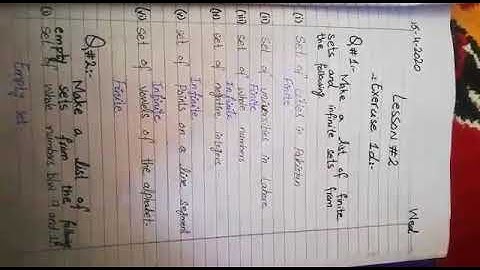 15-4-2020 Wed.
Lesson #2
:- Exercise 1d:-
Q#1:- Make a list of finite
sets and infinite sets from
the following
(i) Set of cities in Pakistan
Finite
(ii) Set of universities in Lahore
Finite
(iii) set of whole numbers
Infinite
(iv) set of negative integers
Infinite
(v) set of Points on a line segment
Infinite
(vi) set of vowels of the alphabet.
Finite
Q#2:- Make a list of
empty sets from the following
(i) set of whole numbers b/w 17 and 18
Empty set